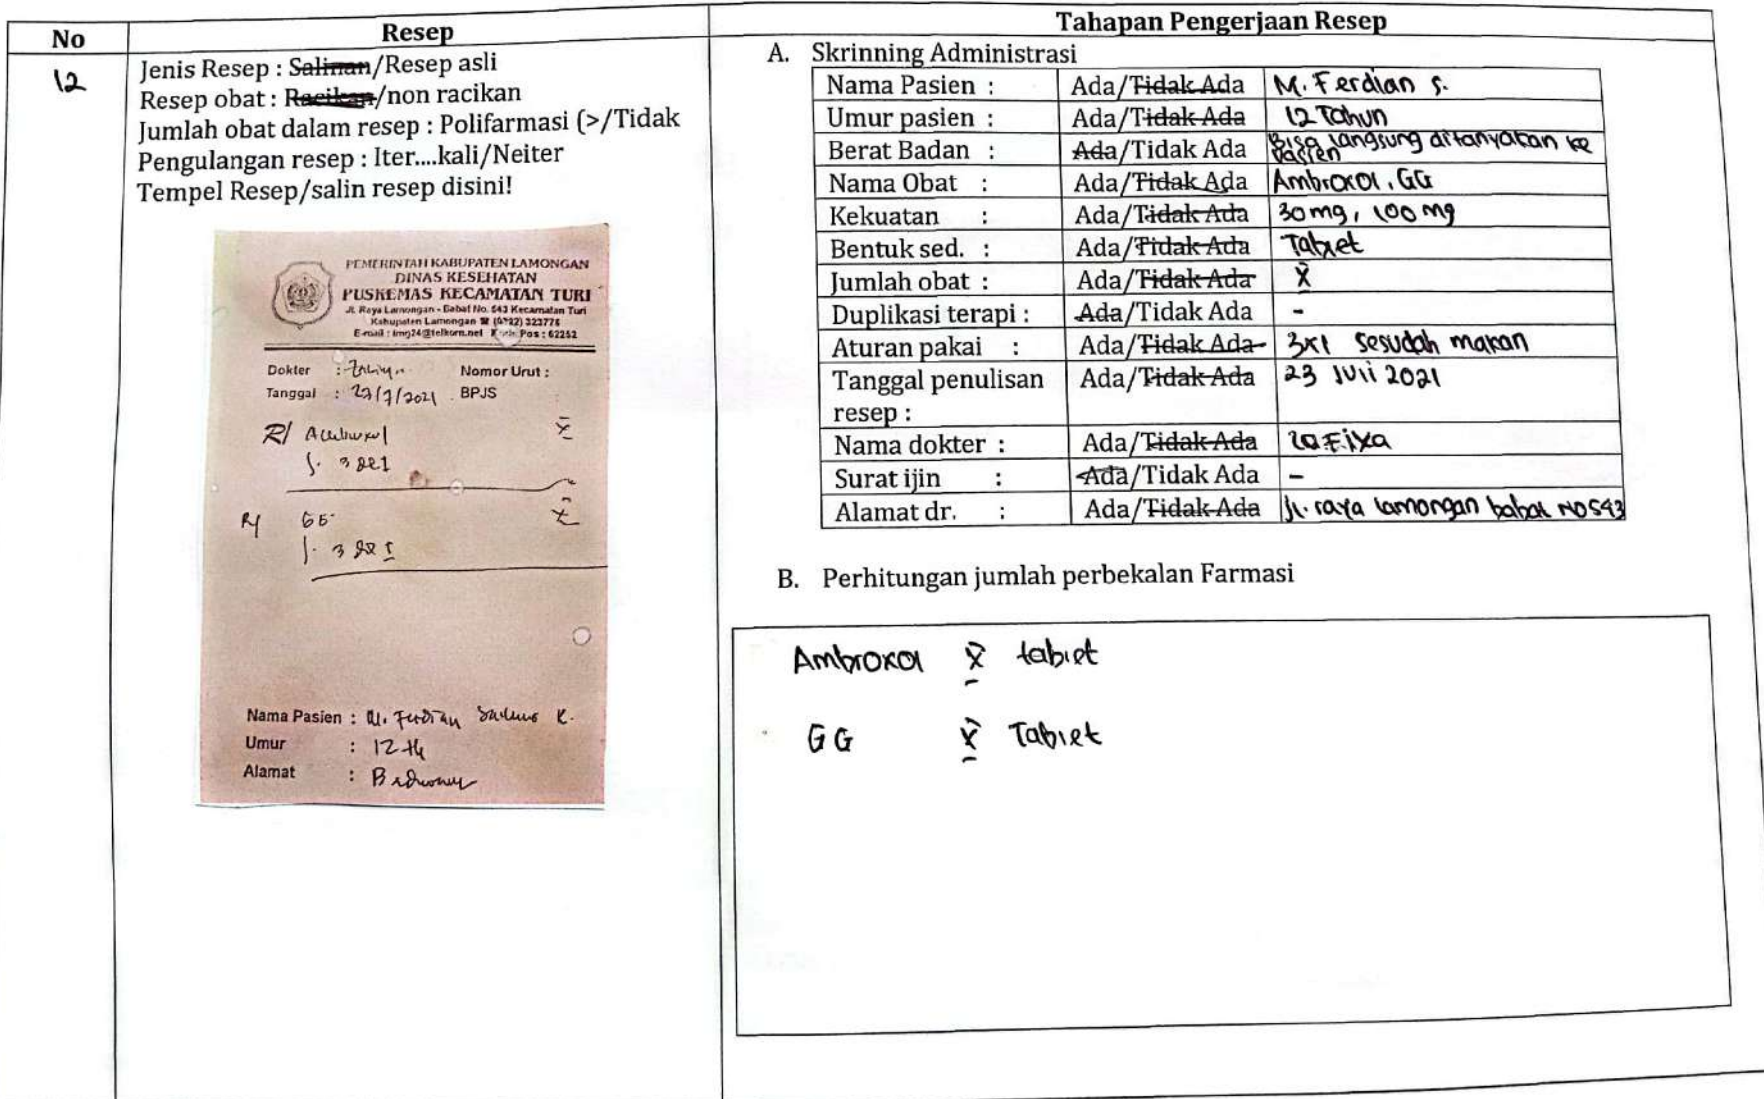 No
Resep
Tahapan Pengerjaan Resep
12
Jenis Resep : Salinan/Resep asli
Resep obat : Racikan/non racikan
Jumlah obat dalam resep : Polifarmasi (>/Tidak
Pengulangan resep : Iter....kali/Neiter
Tempel Resep/salin resep disini!
PEMERINTAH KABUPATEN LAMONGAN
DINAS KESEHATAN
PUSKEMAS KECAMATAN TURI
Jl. Raya Lamongan - Babat No. 543 Kecamatan Turi
Kabupaten Lamongan ☎ (0322) 323776
E-mail : lmg24@telkom.net Kode Pos : 62252
Dokter :
Nomor Urut :
Tanggal : 23/7/2021
BPJS
R/ Ambroxol X
S. 3 dd 1
R/ GG X
S. 3 dd I
Nama Pasien : M. Ferdian
Umur : 12 th
Alamat :
A. Skrinning Administrasi
Nama Pasien : Ada/Tidak Ada M. Ferdian S.
Umur pasien : Ada/Tidak Ada 12 Tahun
Berat Badan : Ada/Tidak Ada Bisa langsung ditanyakan ke pasien
Nama Obat : Ada/Tidak Ada Ambroxol, GG
Kekuatan : Ada/Tidak Ada 30 mg, 100 mg
Bentuk sed. : Ada/Tidak Ada Tablet
Jumlah obat : Ada/Tidak Ada X
Duplikasi terapi : Ada/Tidak Ada -
Aturan pakai : Ada/Tidak Ada 3x1 sesudah makan
Tanggal penulisan resep : Ada/Tidak Ada 23 Juli 2021
Nama dokter : Ada/Tidak Ada
Surat ijin : Ada/Tidak Ada -
Alamat dr. : Ada/Tidak Ada Jl. raya lamongan babat No 543
B. Perhitungan jumlah perbekalan Farmasi
Ambroxol X tablet
GG X Tablet